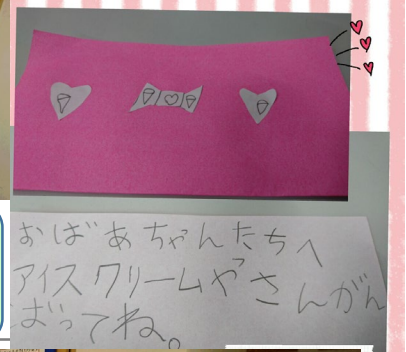 おばあちゃんたちへ
アイスクリームやさんがん
ばってね。